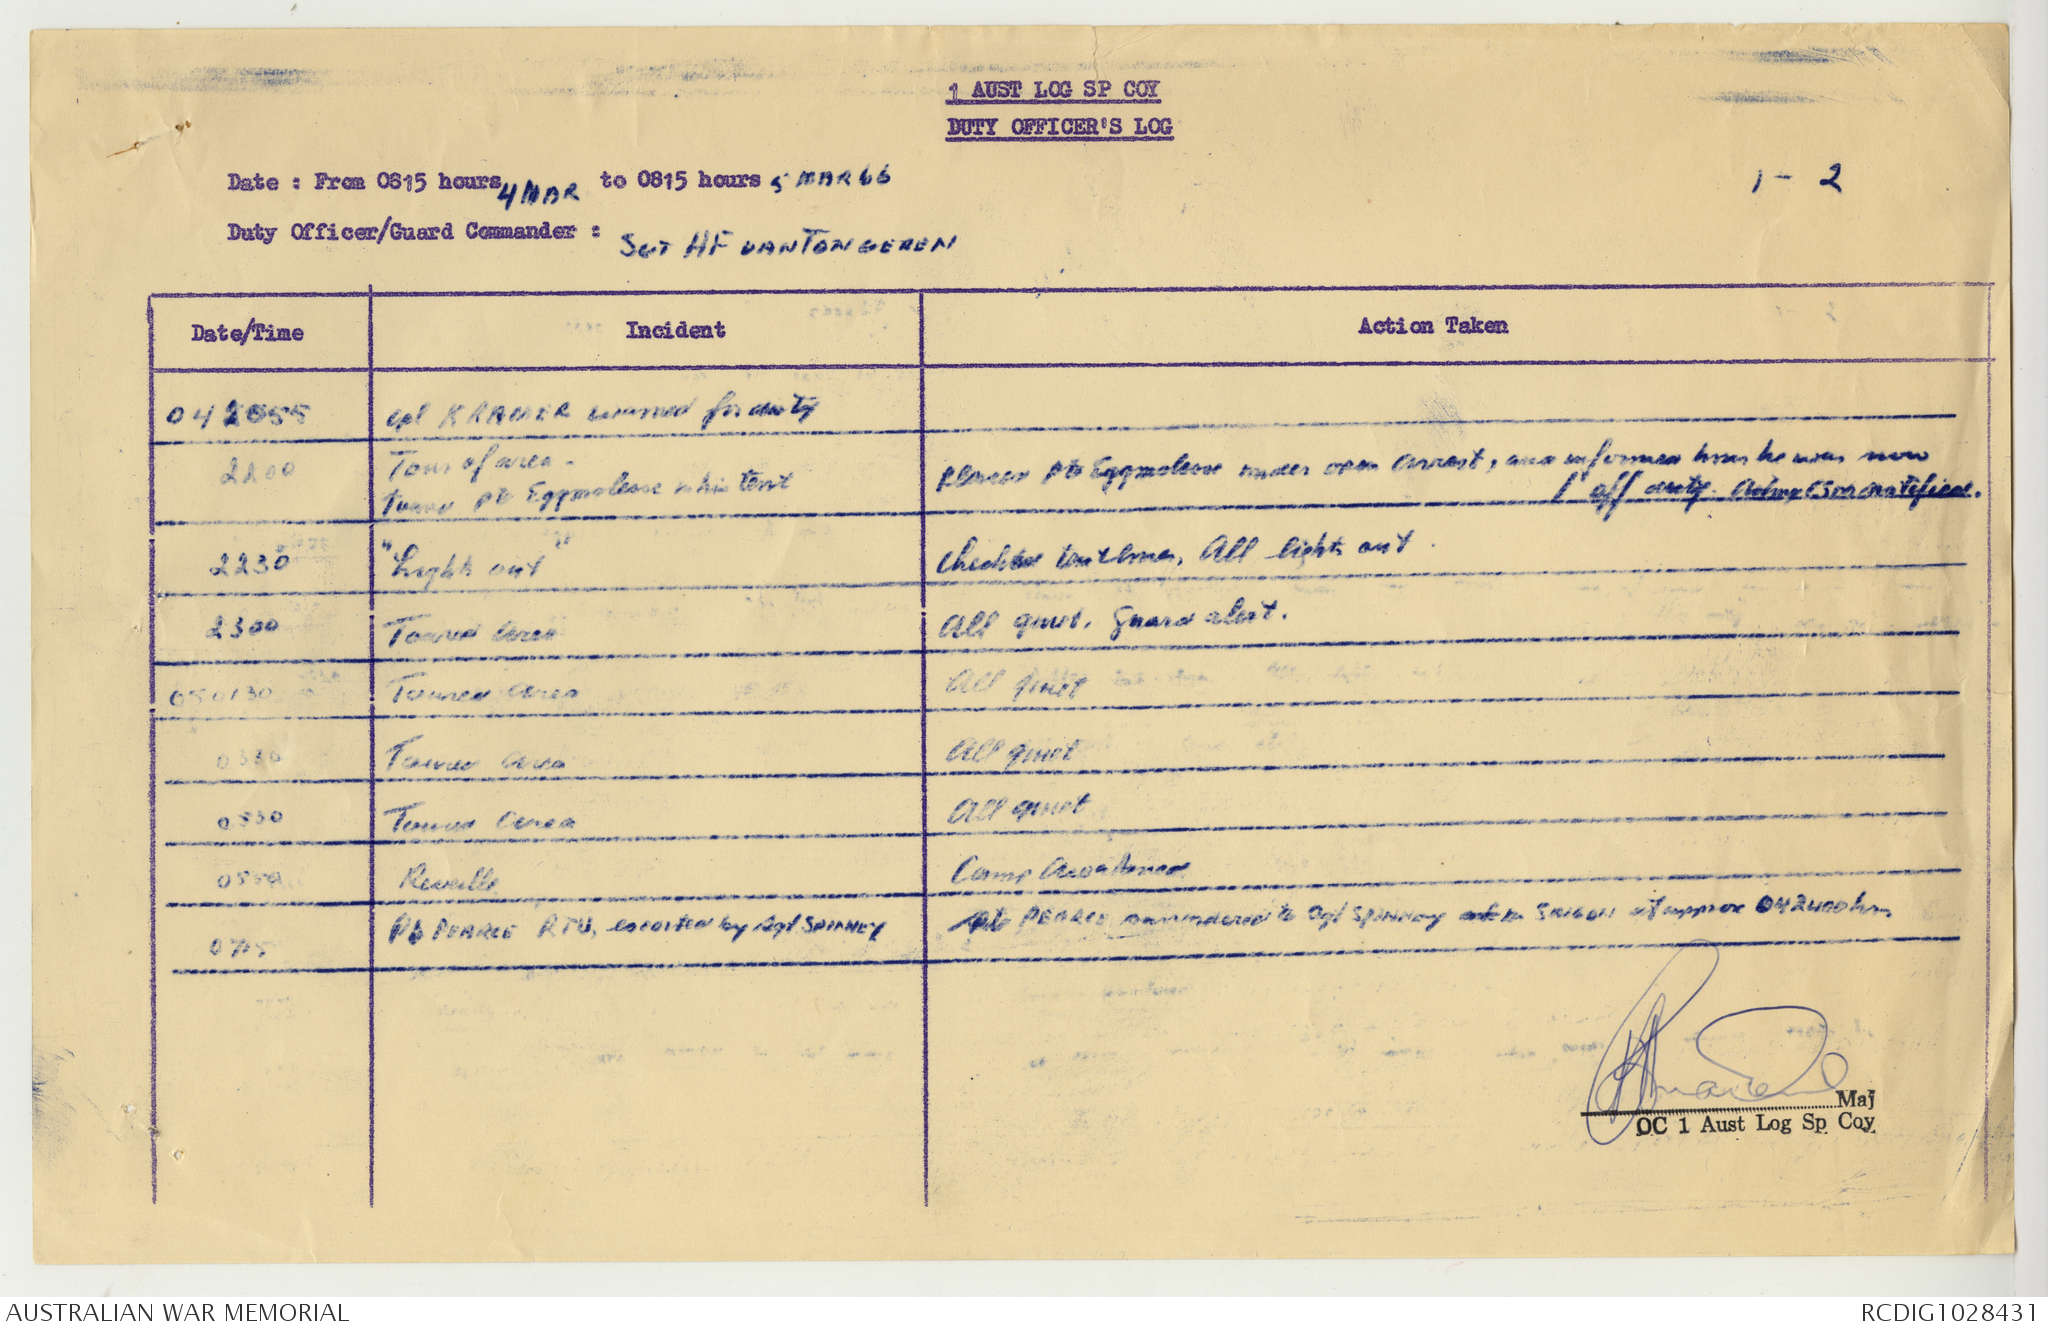 1 AUST LOG SP COY
DUTY OFFICER'S LOG
Date : From 0815 hours 4 MAR to 0815 hours 5 MAR 66
1 - 2
Duty Officer/Guard Commander : SGT HF VANTONGEREN
Date/Time Incident Action Taken
042055 Cpl KRAMER warned for duty
2200 Tour of area.
Found Pte Eggmolesse in his tent
Placed Pte Eggmolesse under open arrest, and informed him he was now
off duty. notified.
2230 "Lights out" Checked tent lines, All lights out.
2300 Toured area All quiet. Guard alert.
050130 Toured area All quiet
0330 Toured area All quiet
0530 Toured area All quiet
0550 Reveille Camp Awakened
0715 Pte PEARCE RTU, escorted by Sgt SPINNEY Pte PEARCE surrendered to Sgt SPINNEY in SAIGON at approx 042400 hrs
Maj
OC 1 Aust Log Sp Coy
AUSTRALIAN WAR MEMORIAL
RCDIG1028431